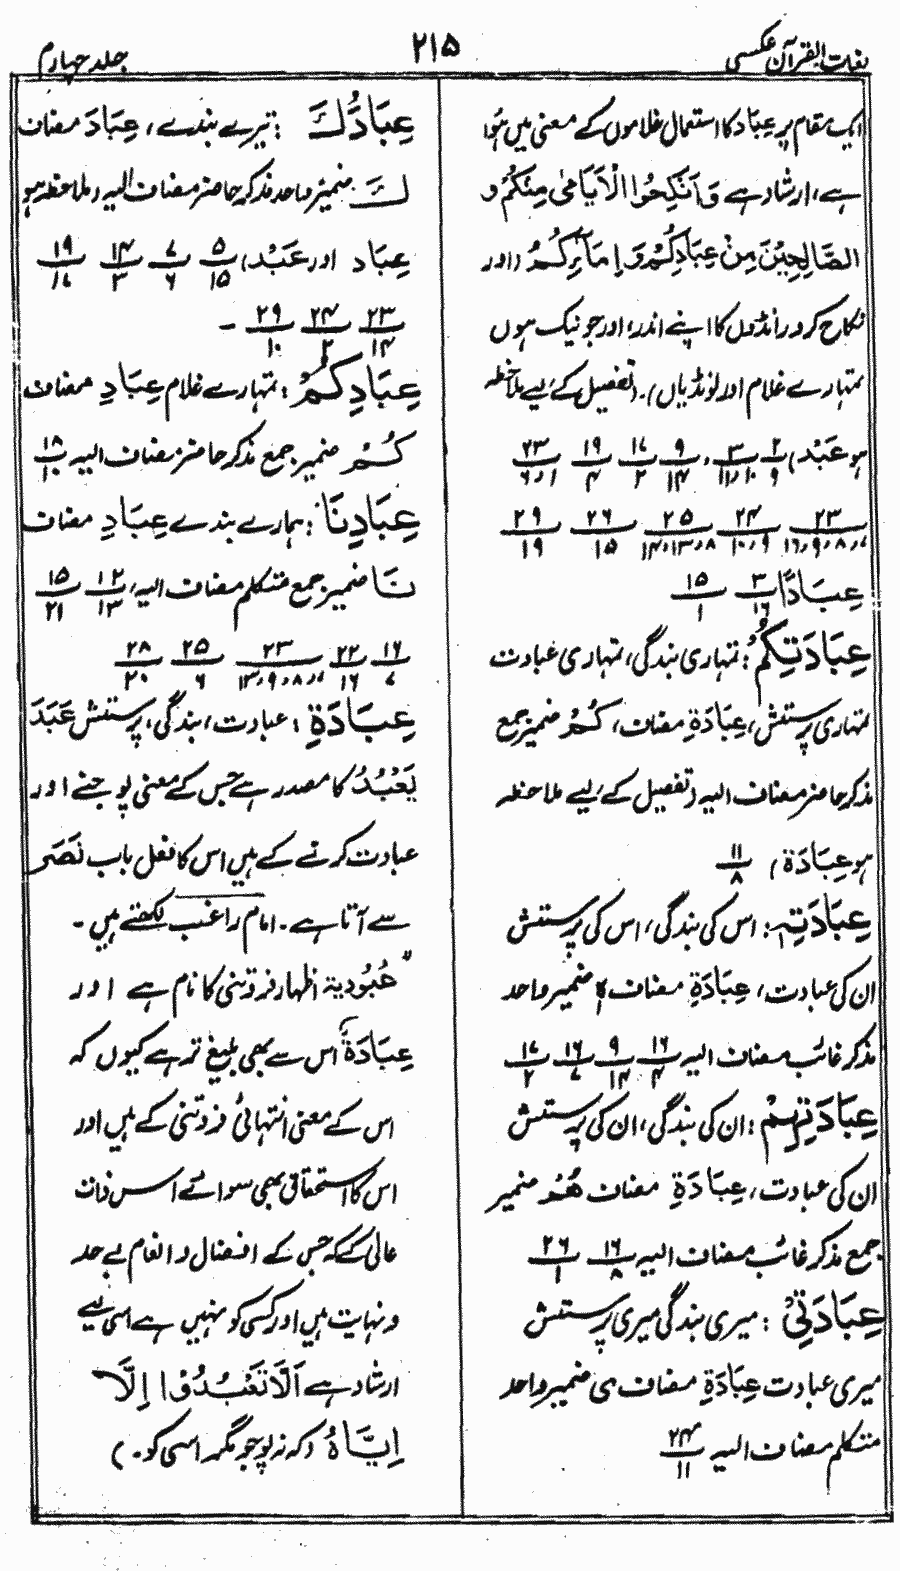 لغات القرآن عکسی
۲۱۵
جلد چہارم
ایک مقام پر عِبَاد کا استعمال غلاموں کے معنی میں ہُوا
ہے، ارشاد ہے وَاَنْکِحُوا الْاَیَامٰی مِنْکُمْ و
الصَّالِحِیْنَ مِنْ عِبَادِکُمْ وَ اِمَآئِکُمْ (اور
نکاح کرو رانڈوں کا اپنے اندر، اور جو نیک ہوں
تمہارے غلام اور لونڈیاں)۔ (تفصیل کے لیے ملاحظہ
ہو عَبْد) ۲/۹ ۳/۱۰،۱۱، ۹/۱۴ ۱۷/۲ ۱۹/۴ ۲۳/۱،۶
۲۳/۷،۸،۹،۱۶ ۲۴/۹،۱۰ ۲۵/۸،۱۳،۱۴ ۲۶/۱۵ ۲۹/۱۹
عِبَادًا ۳/۱۶ ۱۵/۱
عِبَادَتِکُمْ: تمہاری بندگی، تمہاری عبادت
تمہاری پرستش، عِبَادَۃِ مضاف، کُمْ ضمیر جمع
مذکر حاضر مضاف الیہ (تفصیل کے لیے ملاحظہ
ہو عِبَادَۃ) ۱۱/۸
عِبَادَتِہٖ: اس کی بندگی، اس کی پرستش
ان کی عبادت، عِبَادَۃِ مضاف ہٖ ضمیر واحد
مذکر غائب مضاف الیہ ۱۶/۴ ۹/۱۴ ۱۶/۷ ۱۷/۲
عِبَادَتِہِمْ: ان کی بندگی، ان کی پرستش
ان کی عبادت، عِبَادَۃِ مضاف ھُمْ ضمیر
جمع مذکر غائب مضاف الیہ ۱۶/۸ ۲۶/۱
عِبَادَتِیْ: میری بندگی میری پرستش
میری عبادت عِبَادَۃِ مضاف ی ضمیر واحد
متکلم مضاف الیہ ۲۴/۱۱
عِبَادُکَ: تیرے بندے، عِبَادَ مضاف
کَ ضمیر واحد مذکر حاضر مضاف الیہ (ملاحظہ ہو
عِبَاد اور عَبْد) ۵/۱۵ ۷/۶ ۱۴/۳ ۱۹/۱۷
۲۳/۱۴ ۲۴/۲ ۲۹/۱۰ -
عِبَادِکُمْ: تمہارے غلام عِبَادِ مضاف
کُمْ ضمیر جمع مذکر حاضر مضاف الیہ ۱۸/۱۰
عِبَادِنَا: ہمارے بندے عِبَادِ مضاف
نَا ضمیر جمع متکلم مضاف الیہ، ۱۲/۱۳ ۱۵/۲۱
۱۶/۷ ۲۲/۱۶ ۲۳/۷،۸،۹،۱۳ ۲۵/۶ ۲۸/۲۰
عِبَادَۃِ: عبادت، بندگی، پرستش عَبَدَ
یَعْبُدُ کا مصدر ہے جس کے معنی پوجنے اور
عبادت کرنے کے ہیں اس کا فعل باب نَصَرَ
سے آتا ہے۔ امام راغب لکھتے ہیں۔
"عُبُودیۃ اظہار فروتنی کا نام ہے اور
عِبَادَۃٌ اس سے بھی بلیغ تر ہے کیوں کہ
اس کے معنی انتہائی فروتنی کے ہیں اور
اس کا استحقاق بھی سوائے اس ذات
عالی کے کہ جس کے افضال و انعام بے حد
و نہایت ہیں اور کسی کو نہیں ہے اسی لیے
ارشاد ہے اَلَّا تَعْبُدُوْا اِلَّا
اِیَّاہُ (کہ نہ پوجو مگر اسی کو۔)